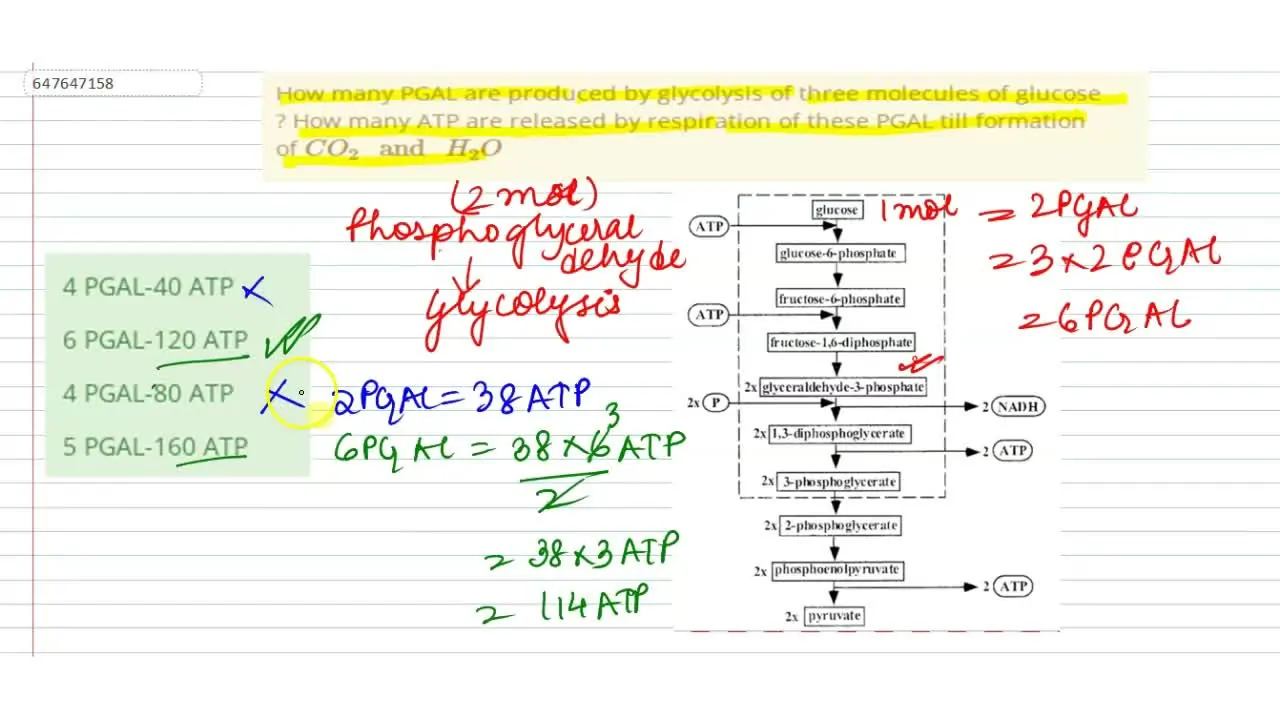 647647158
How many PGAL are produced by glycolysis of three molecules of glucose
? How many ATP are released by respiration of these PGAL till formation
of CO₂ and H₂O
4 PGAL-40 ATP ×
6 PGAL-120 ATP
4 PGAL-80 ATP ×
5 PGAL-160 ATP
(2 mol)
Phosphoglyceral
dehyde
↓
glycolysis
2PGAL = 38 ATP
6PGAL = 38 × 6 ATP
3
2
= 38 × 3 ATP
= 114 ATP
glucose 1 mol = 2PGAL
ATP
glucose-6-phosphate = 3 × 2 PGAL
fructose-6-phosphate
ATP = 6PGAL
fructose-1,6-diphosphate
2x glyceraldehyde-3-phosphate
2x P 2 NADH
2x 1,3-diphosphoglycerate
2 ATP
2x 3-phosphoglycerate
2x 2-phosphoglycerate
2x phosphoenolpyruvate
2 ATP
2x pyruvate